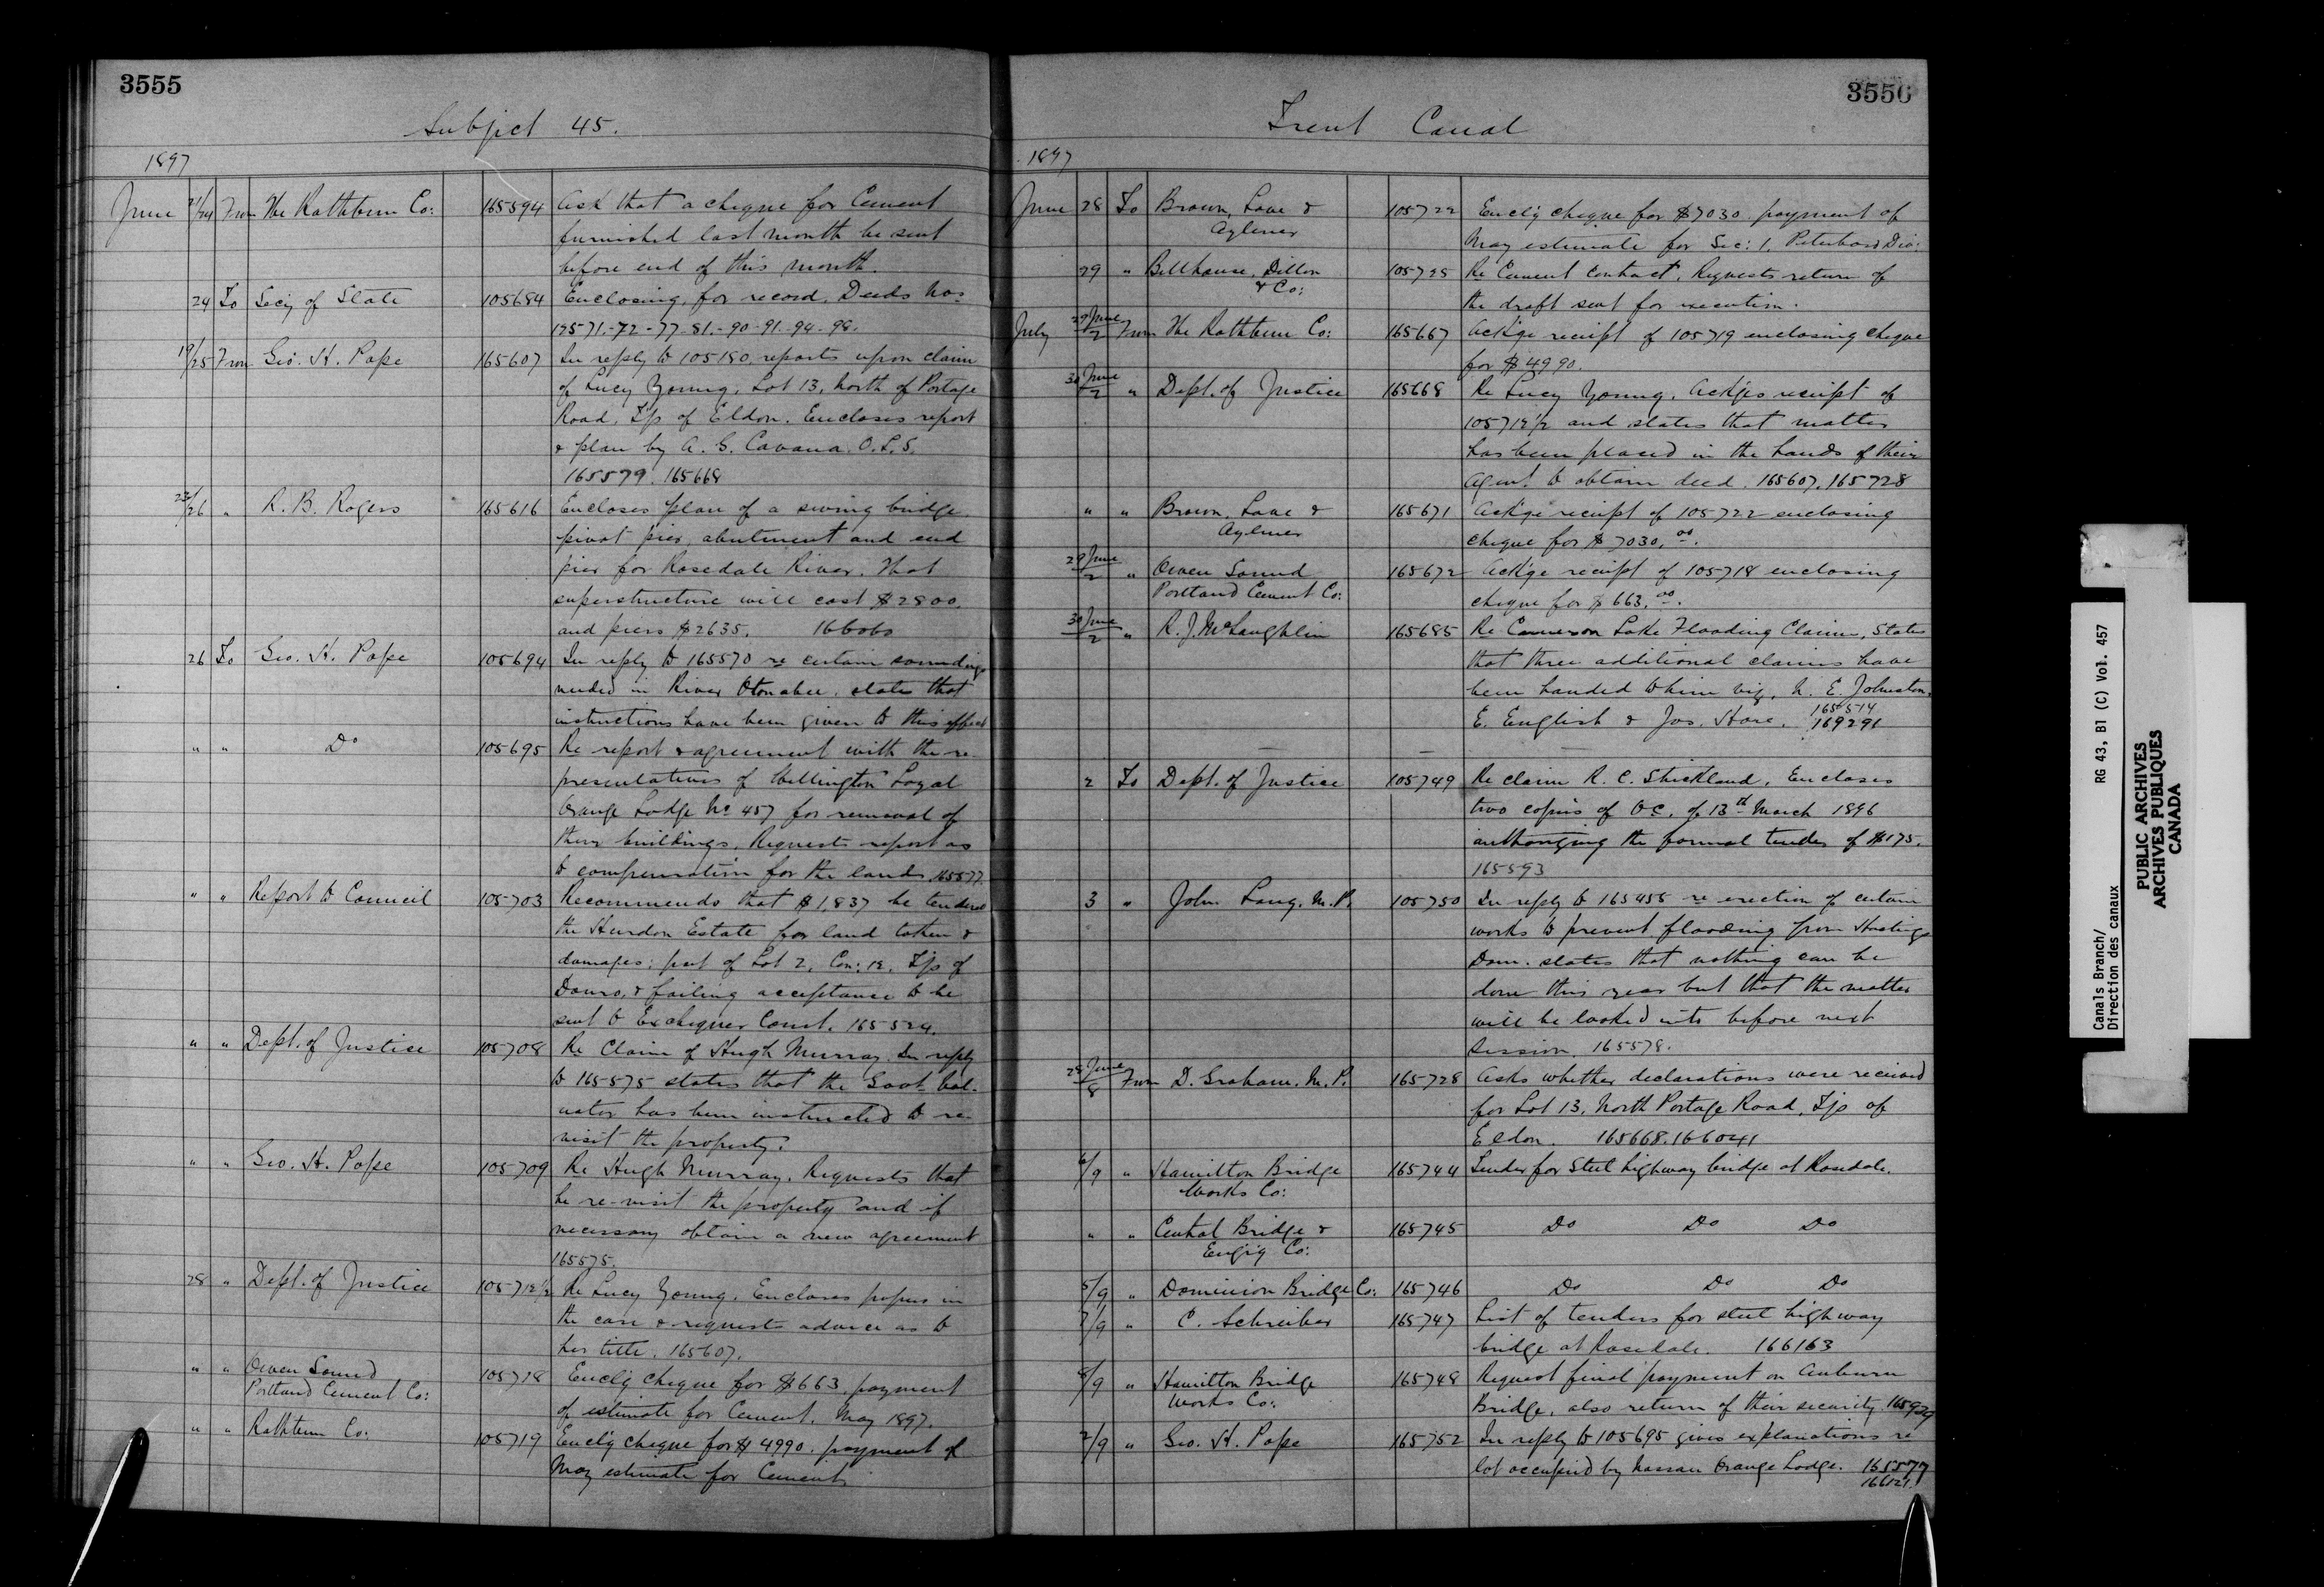 3555
Subject 45.
1897
June 21/24 From The Rathbun Co: 165594 Ask that a cheque for Cement
furnished last month be sent
before end of this month.
24 To Sec'y of State 105684 Enclosing, for record, Deeds Nos
12571-72-77-81-90-91-94-98.
19/25 From Geo. H. Pope 165607 In reply to 105180, reports upon claim
of Lucy Young, Lot 13, North of Portage
Road, T'p of Eldon. Encloses report
& plan by A. G. Cavana, O.L.S.
165579. 165668
23/26 " R. B. Rogers 165616 Encloses plan of a swing bridge
pivot pier, abutment and end
pier for Rosedale River. That
superstructure will cost $2800.
and piers $2635. 166060
26 To Geo. H. Pope 105694 In reply to 165570 re certain soundings
needed in River Otonabee, states that
instructions have been given to this effect
" " Do 105695 Re report & agreement with the re-
presentatives of Wellington Loyal
Orange Lodge No 457 for removal of
their buildings. Requests report as
to compensation for the lands. 165577
" " Report to Council 105703 Recommends that $1,837 be tendered
the Hurdon Estate for land taken &
damages; part of Lot 2, Con: 12, T'p of
Douro, & failing acceptance to be
sent to Exchequer Court. 165524.
" " Dept. of Justice 105708 Re Claim of Hugh Murray. In reply
to 165575 states that the Govt Val-
uator has been instructed to re-
visit the property.
" " Geo. H. Pope 105709 Re Hugh Murray. Requests that
he re-visit the property and if
necessary obtain a new agreement
165575.
28 " Dept. of Justice 105712 1/2 Re Lucy Young. Encloses papers in
the case & requests advice as to
her title. 165607.
" " Owen Sound
Portland Cement Co: 105718 Encl'g cheque for $663, payment
of estimate for Cement, May 1897.
" " Rathbun Co: 105719 Encl'g cheque for $4990. payment of
May estimate for Cement.
3556
Trent Canal
1897
June 28 To Brown, Love &
Aylmer 105722 Encl'g cheque for $7030 payment of
May estimate for Sec: 1, Peterboro Div:
29 " Bellhouse, Dillon
& Co: 105725 Re Cement Contract. Requests return of
the draft sent for execution.
July 29 June/2 From The Rathbun Co: 165667 Ack'ge receipt of 105719 enclosing cheque
for $4990.
30 June/2 " Dept. of Justice 165668 Re Lucy Young. Ack'ges receipt of
105712 1/2 and states that matter
has been placed in the hands of their
Agent to obtain deed. 165607. 165728
" " Brown, Love &
Aylmer 165671 Ack'ge receipt of 105722 enclosing
cheque for $7030.00.
29 June/2 " Owen Sound
Portland Cement Co: 165672 Ack'ge receipt of 105718 enclosing
cheque for $663.00.
30 June/2 " R. J. McLaughlin 165685 Re Cameron Lake Flooding Claims, States
that three additional claims have
been handed to him viz, N. E. Johnston,
E. English & Jos. Hore. 165514
169291
2 To Dept. of Justice 105749 Re claim R. C. Strickland. Encloses
two copies of O.C. of 13th March 1896
authorizing the formal tender of $175.
165593
3 " John Lang, M.P. 105750 In reply to 165455 re erection of certain
works to prevent flooding from Hastings
Dam. states that nothing can be
done this year but that the matter
will be looked into before next
Session. 165578.
28 June/8 From D. Graham, M.P. 165728 Asks whether declarations were received
for Lot 13, North Portage Road, T'p of
Eldon. 165668. 166041
6/9 " Hamilton Bridge
Works Co: 165744 Tender for Steel highway bridge at Rosedale.
" " Central Bridge &
Eng'g Co: 165745 Do Do Do
5/9 " Dominion Bridge Co: 165746 Do Do Do
7/9 " C. Schreiber 165747 List of tenders for steel highway
bridge at Rosedale. 166163
8/9 " Hamilton Bridge
Works Co: 165748 Request final payment on Auburn
Bridge, also return of their security. 165929
2/9 " Geo. H. Pope 165752 In reply to 105695 gives explanations re
lot occupied by Nassau Orange Lodge. 165577
166121.
Canals Branch/
Direction des canaux
RG 43, B1 (C) Vol. 457
PUBLIC ARCHIVES
ARCHIVES PUBLIQUES
CANADA